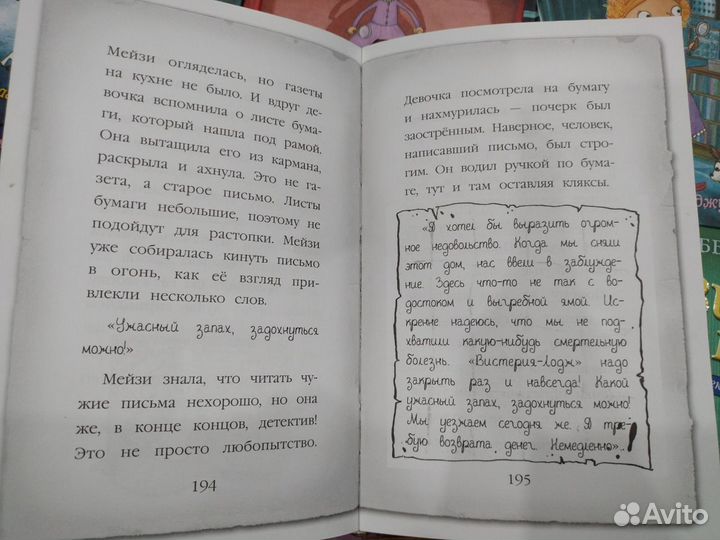 Мейзи огляделась, но газеты
на кухне не было. И вдруг де-
вочка вспомнила о листе бума-
ги, который нашла под рамой.
Она вытащила его из кармана,
раскрыла и ахнула. Это не га-
зета, а старое письмо. Листы
бумаги небольшие, поэтому не
подойдут для растопки. Мейзи
уже собиралась кинуть письмо
в огонь, как её взгляд при-
влекли несколько слов.
«Ужасный запах, задохнуться
можно!»
Мейзи знала, что читать чу-
жие письма нехорошо, но она
же, в конце концов, детектив!
Это не просто любопытство.
194
Девочка посмотрела на бумагу
и нахмурилась — почерк был
заострённым. Наверное, человек,
написавший письмо, был стро-
гим. Он водил ручкой по бума-
ге, тут и там оставляя кляксы.
«Я хотел бы выразить огром-
ное недовольство. Когда мы сняли
этот дом, нас ввели в заблужде-
ние. Здесь что-то не так с во-
достоком и выгребной ямой. Ис-
кренне надеюсь, что мы не под-
хватили какую-нибудь смертельную
болезнь. «Вистерия-Лодж» надо
закрыть раз и навсегда! Какой
ужасный запах, задохнуться можно!
Мы уезжаем сегодня же. Я тре-
бую возврата денег. Немедленно».
195
Avito